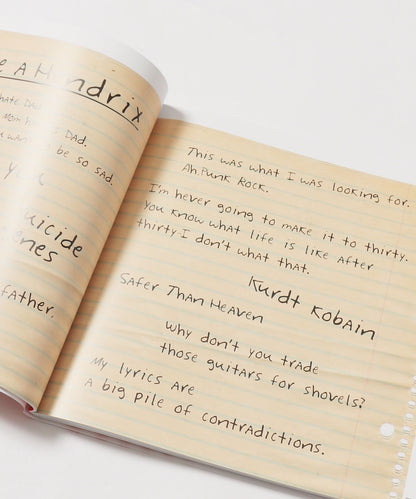 Hendrix
Dad.
Mom
DAD.
be so SAD.
you
father.
This was what I was looking for.
Ah, Punk Rock.
I'm never going to make it to thirty.
you know what life is like after
thirty-I don't what that.
Kurdt Kobain
Safer Than Heaven
why don't you trade
those guitars for shovels?
My lyrics are
a big pile of contradictions.